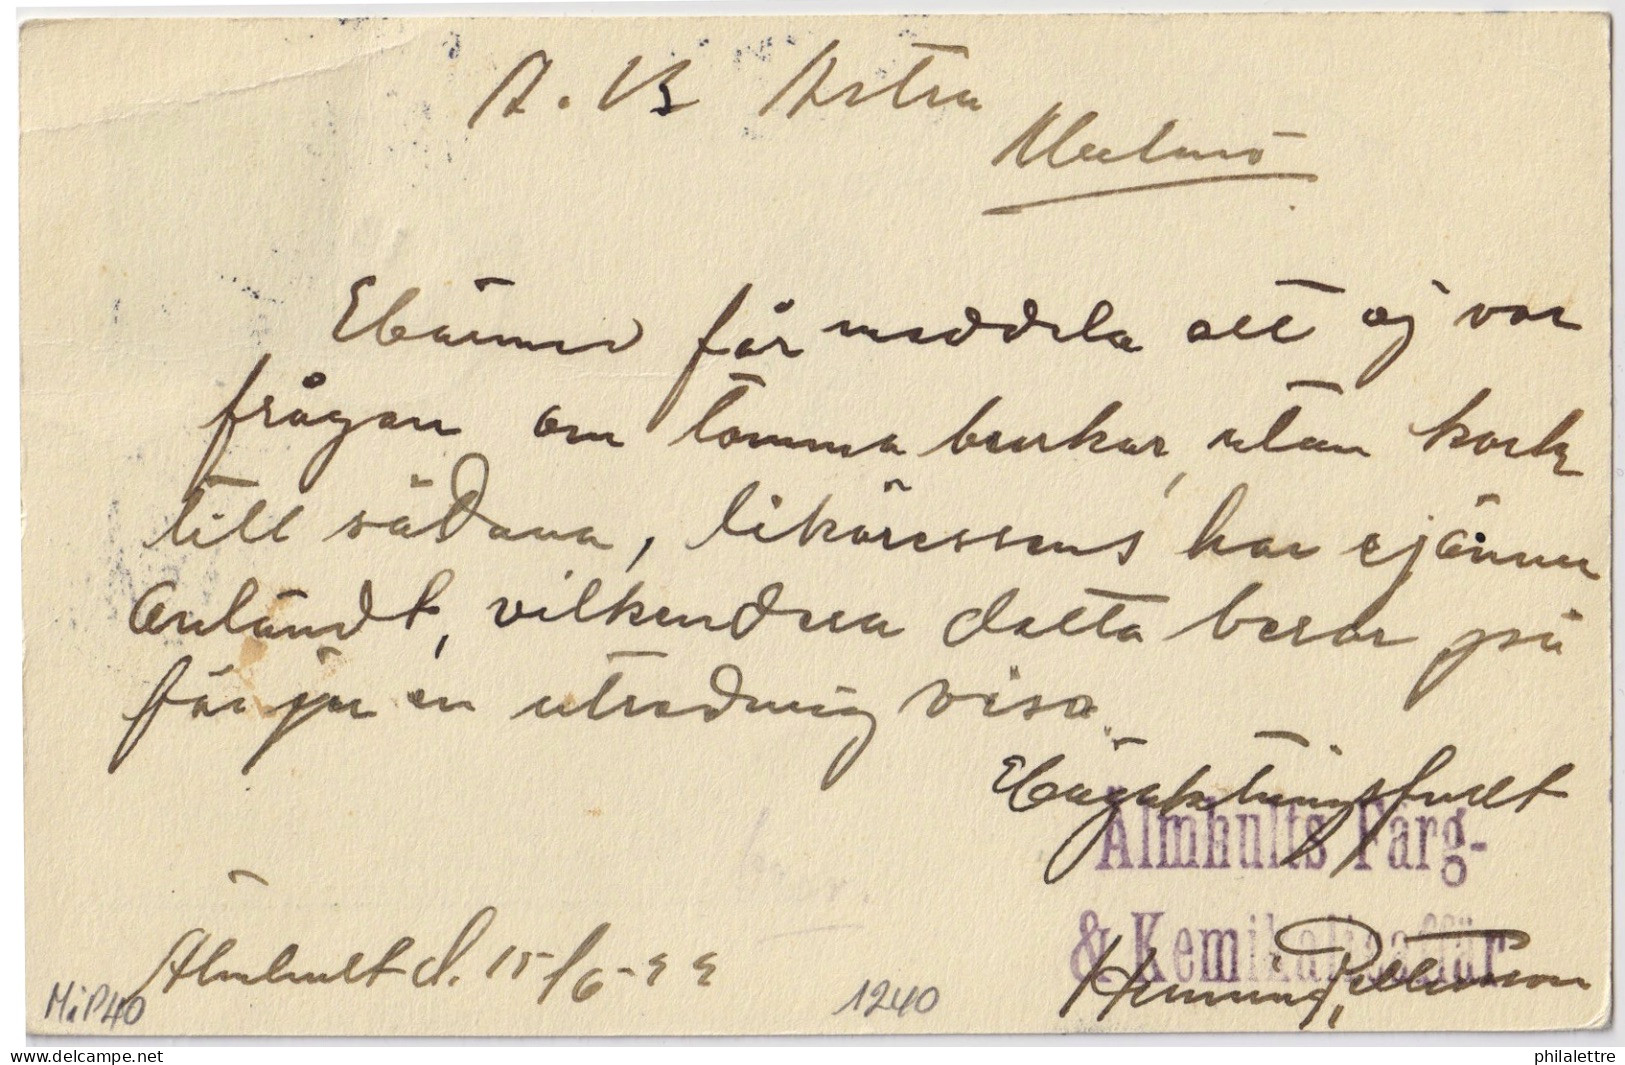 A.B Astra
Malmö
Ebärmed får meddela att ej var
frågan om tomma burkar, utan kork
till sådana, likäressens har ejännu
anländt, vilkendera detta beror på
får jag en utredning visa.
Högaktningsfullt
Älmhults Färg-
& Kemikalieaffär
Henning Petterson
Älmhult d. 15/6-22
MiP40
1240
delcampe.net
philalettre